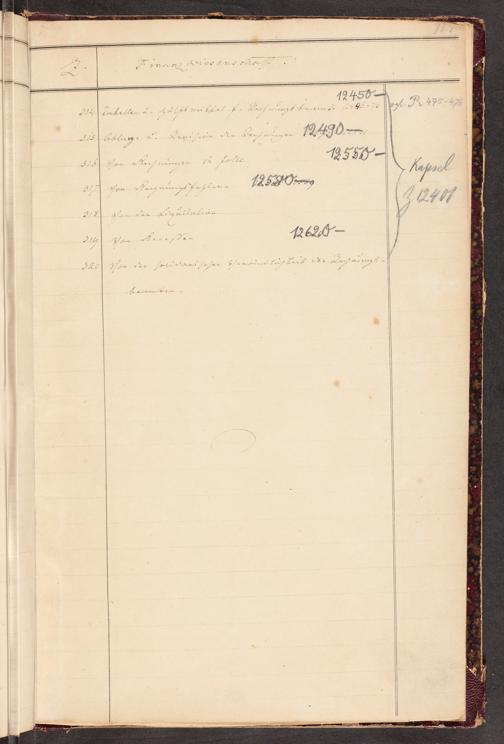 Z. Finanzwissenschaft.
314 Tabellen u. Hülfsmittel f. Rechnungsbeamte 12450— vgl. P. 475-476
315 Ablage u. Revision der Rechnungen 12490—
316 Von Rechnungen in 12550—
317 Von Rechnungsfehlern 12530
318 Von der Liquidation
319 Von Recessen 12620—
320 Von der solidarischen Verbindlichkeit der Rechnungs-
beamten.
Kapsel
Z 12401